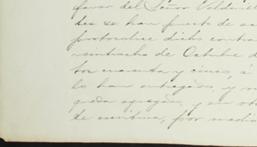 favor del Señor Valdiv
des se han puesto de ac
protocolice dicho contra
contrato de Octubre d
tos cuarenta y cinco, á
lo han entregado, y
queda agregado, y en
de escritura, por medio